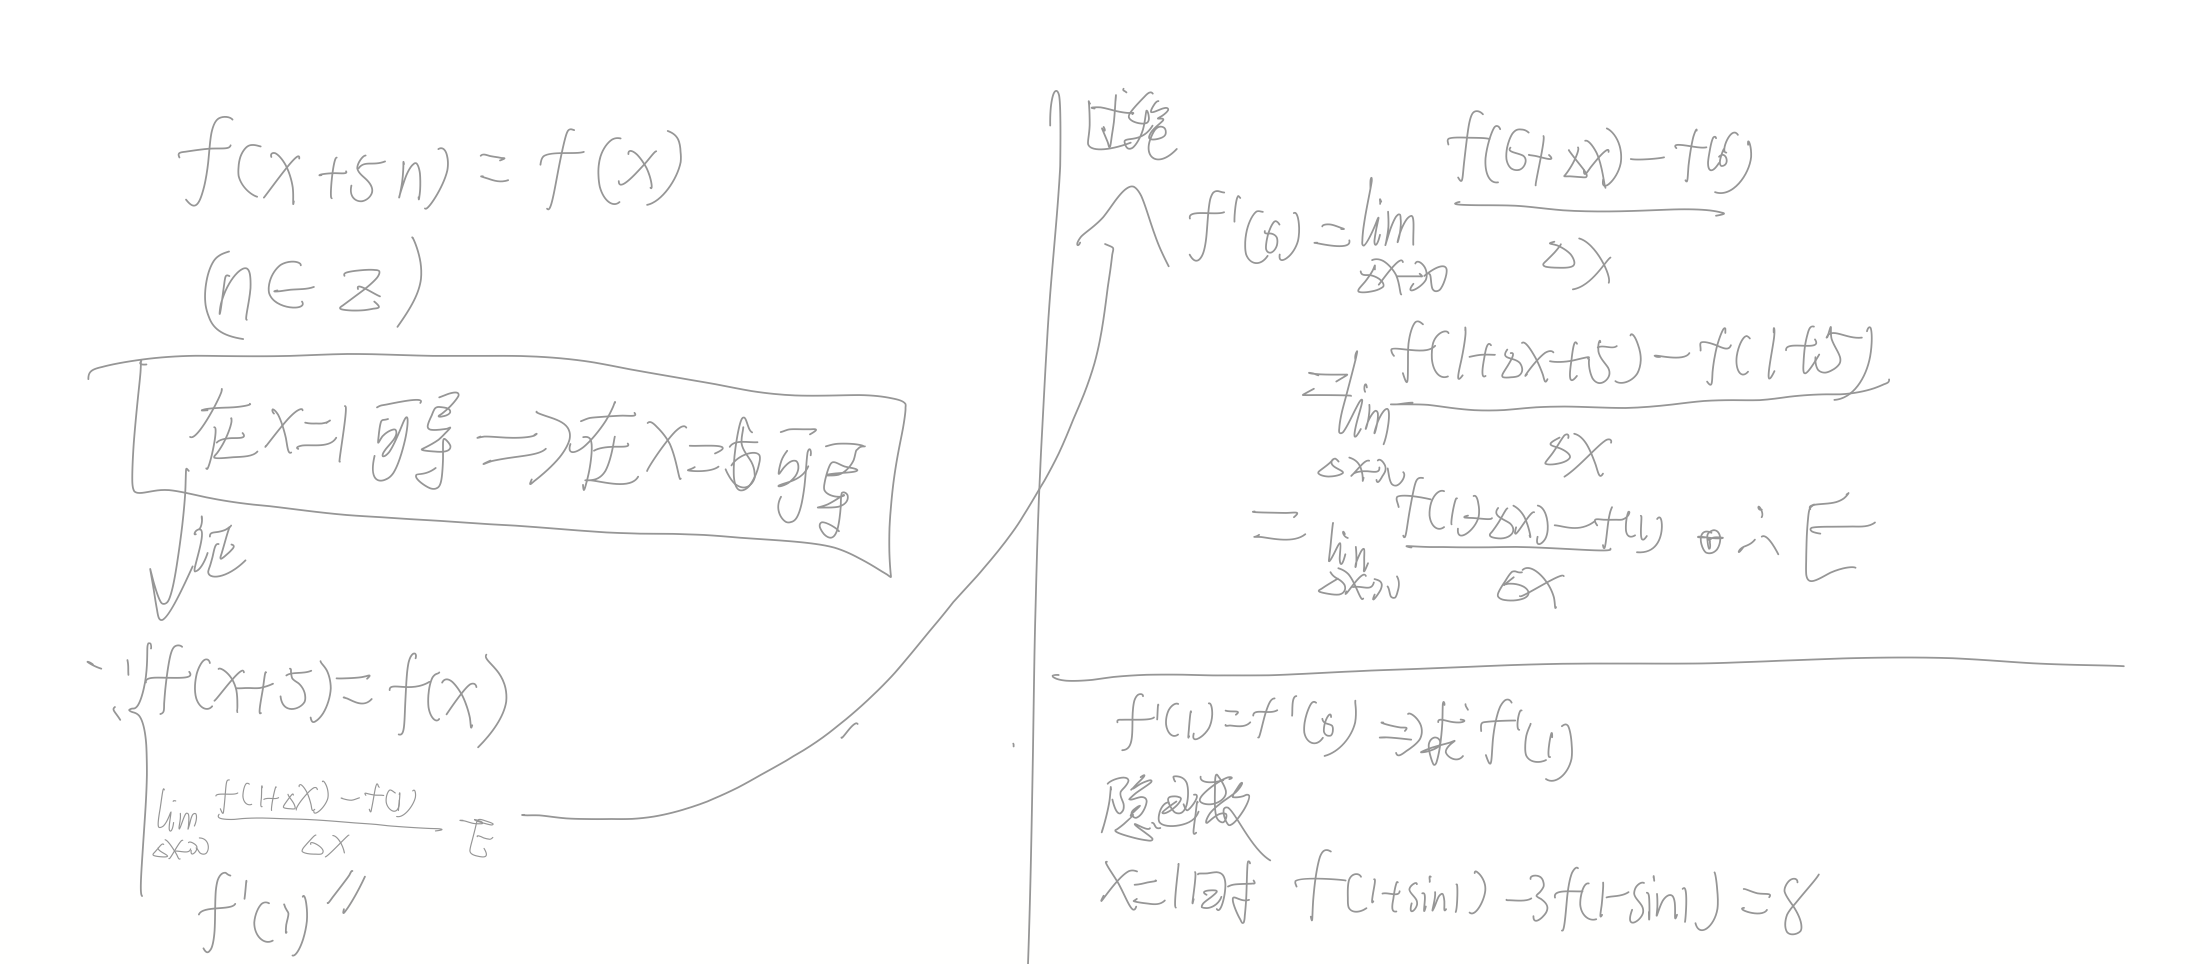 f(x+5n)=f(x)
(n∈z)
在x=1可导⇒在x=6可导
证
∵ f(x+5)=f(x)
lim Δx→0 (f(1+Δx)-f(1))/Δx E
f'(1)
过程
f'(6)=lim Δx→0 (f(6+Δx)-f(6))/Δx
=lim Δx→0 (f(1+Δx+5)-f(1+5))/Δx
=lim Δx→0 (f(1+Δx)-f(1))/Δx ∴ E
f'(1)=f'(6)⇒求f'(1)
隐函数
x=1时 f(1+sin1)-3f(1-sin1)=8